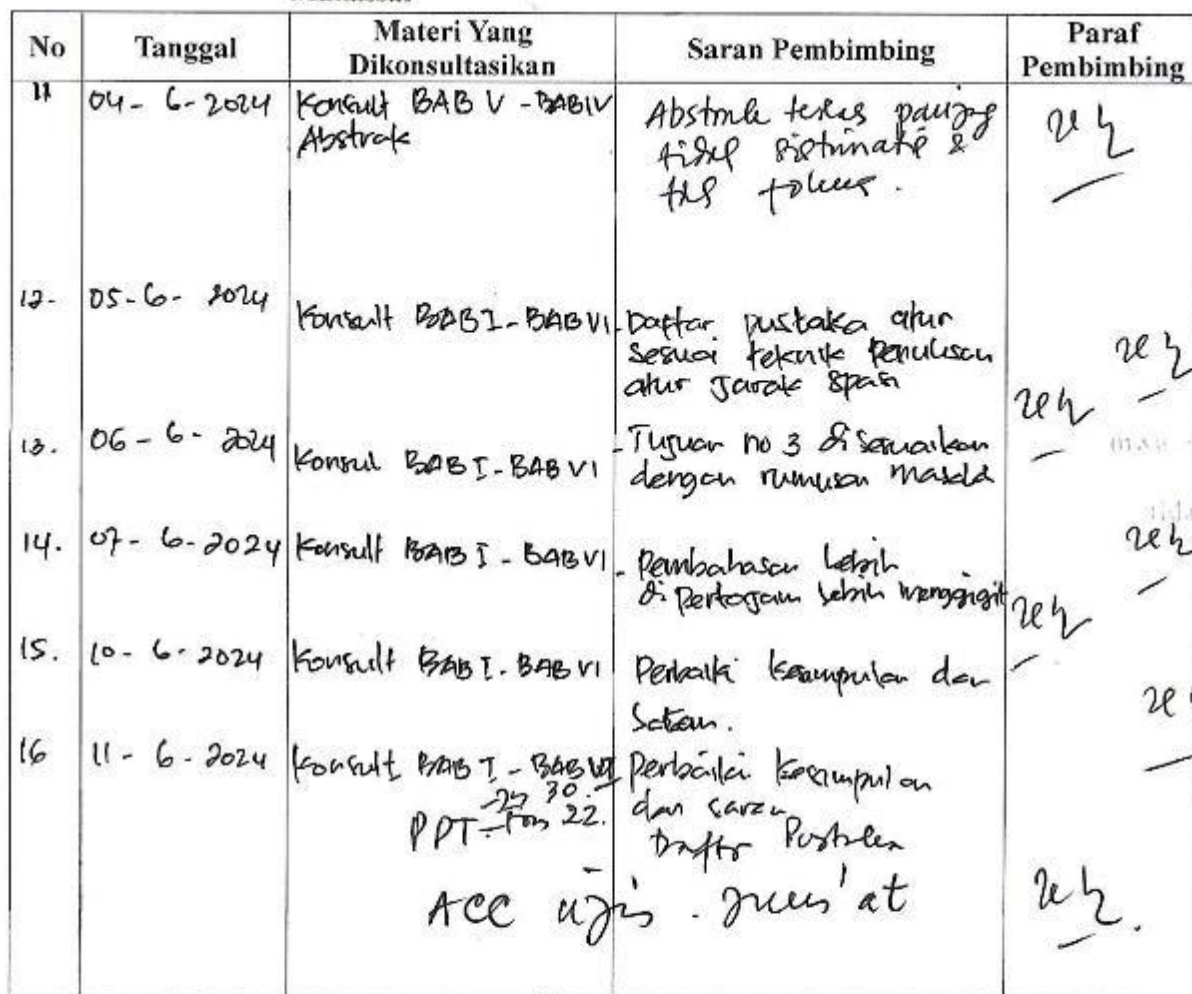 No Tanggal Materi Yang Dikonsultasikan Saran Pembimbing Paraf Pembimbing
11 04-6-2024 Konsult BAB V - BAB IV Abstrak panjang
tidak &
12. 05-6-2024 Konsult BAB I - BAB VI - Daftar pustaka atur
sesuai teknik Penulisan
atur Jarak spasi
13. 06-6-2024 Konsul BAB I - BAB VI - Tujuan no 3 di sesuaikan
dengan rumusan
14. 07-6-2024 Konsult BAB I - BAB VI - Pembahasan lebih
di Pertajam lebih menggigit
15. 10-6-2024 Konsult BAB I - BAB VI Perbaiki kesimpulan dan
16 11-6-2024 Konsult BAB I - BAB VI Perbaiki kesimpulan
30. dan saran
PPT 22. Daftar Pustaka
ACC ujis. Jum'at